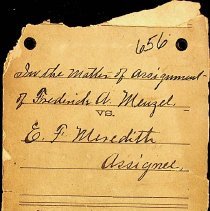 656
In the Matter of Assignment
of Frederick A. Menzel
VS.
E. F. Meredith
Assignee,